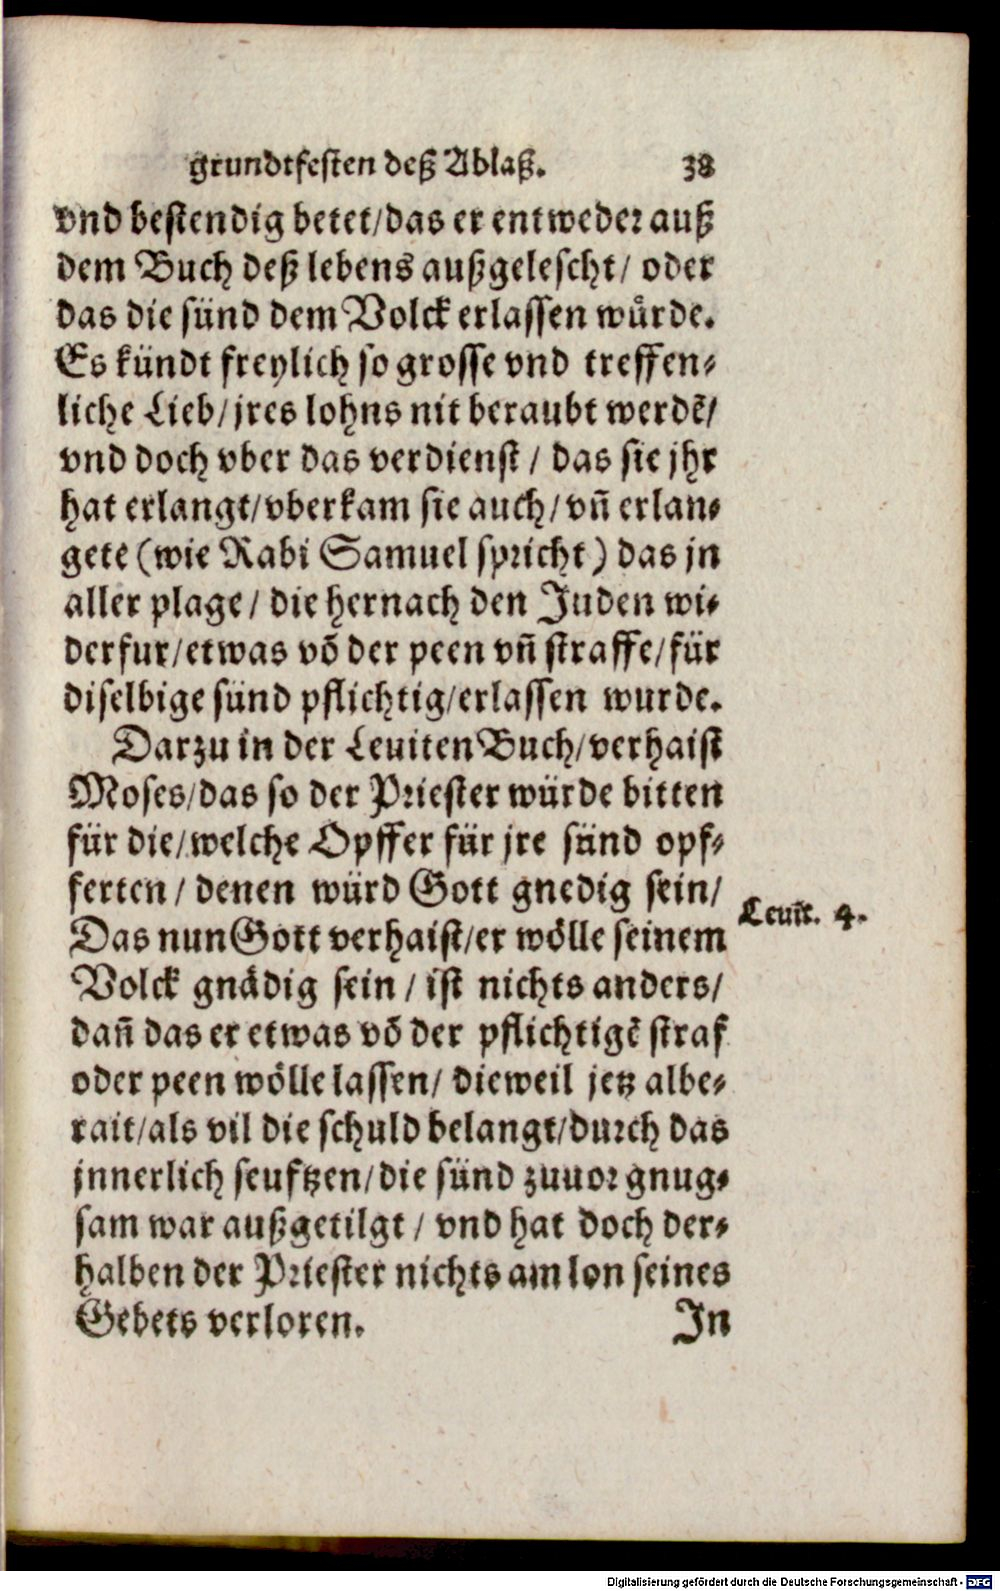 grundtfesten deß Ablaß. 38
vnd bestendig betet/das er entweder auß
dem Buch deß lebens außgelescht/ oder
das die sünd dem Volck erlassen wuͤrde.
Es kündt freylich so grosse vnd treffen-
liche Lieb/jres lohns nit beraubt werdẽ/
vnd doch vber das verdienst / das sie jhr
hat erlangt/vberkam sie auch/vñ erlan-
gete (wie Rabi Samuel spricht) das jn
aller plage/ die hernach den Juden wi-
derfur/etwas võ der peen vñ straffe/für
diselbige sünd pflichtig/erlassen wurde.
Darzu in der Leuiten Buch/verhaist
Moses/das so der Priester würde bitten
für die/welche Opffer für jre sünd opf-
ferten / denen würd Gott gnedig sein/
Leuit. 4.
Das nun Gott verhaist/er wölle seinem
Volck gnädig sein / ist nichts anders/
dañ das er etwas võ der pflichtigẽ straf
oder peen wölle lassen/ dieweil jetz albe-
rait/als vil die schuld belangt/durch das
jnnerlich seuftzen/die sünd zuuor gnug-
sam war außgetilgt / vnd hat doch der-
halben der Priester nichts am lon seines
Gebets verloren. In
Digitalisierung gefördert durch die Deutsche Forschungsgemeinschaft - DFG